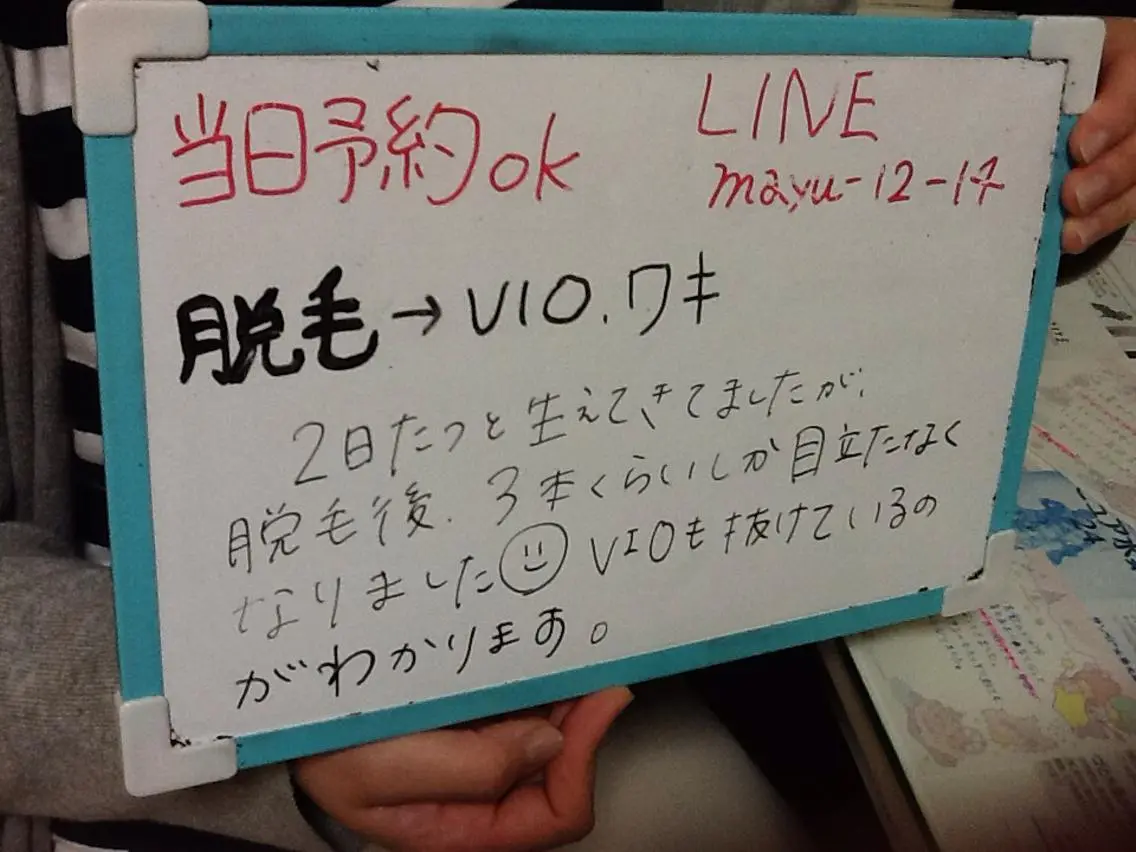 当日予約ok
LINE
mayu-12-14
脱毛→VIO.ワキ
2日たつと生えてきてましたが、
脱毛後、3本くらいしか目立たなく
なりました☺VIOも抜けているの
がわかります。